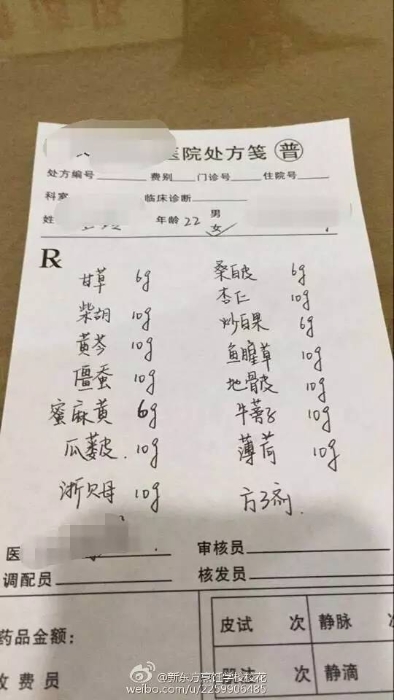 医院处方笺 普
处方编号 费别 门诊号 住院号
科室 临床诊断
姓 年龄 22 男
女
R
甘草 6g 桑白皮 6g
柴胡 10g 杏仁 10g
黄芩 10g 炒白果 6g
僵蚕 10g 鱼腥草 10g
蜜麻黄 6g 地骨皮 10g
瓜蒌皮 10g 牛蒡子 10g
浙贝母 10g 薄荷 10g
医
审核员
调配员 核发员
药品金额:
收费员
皮试 次 静脉
次 静滴
@新东方烹饪学校校花
weibo.com/u/2259906485